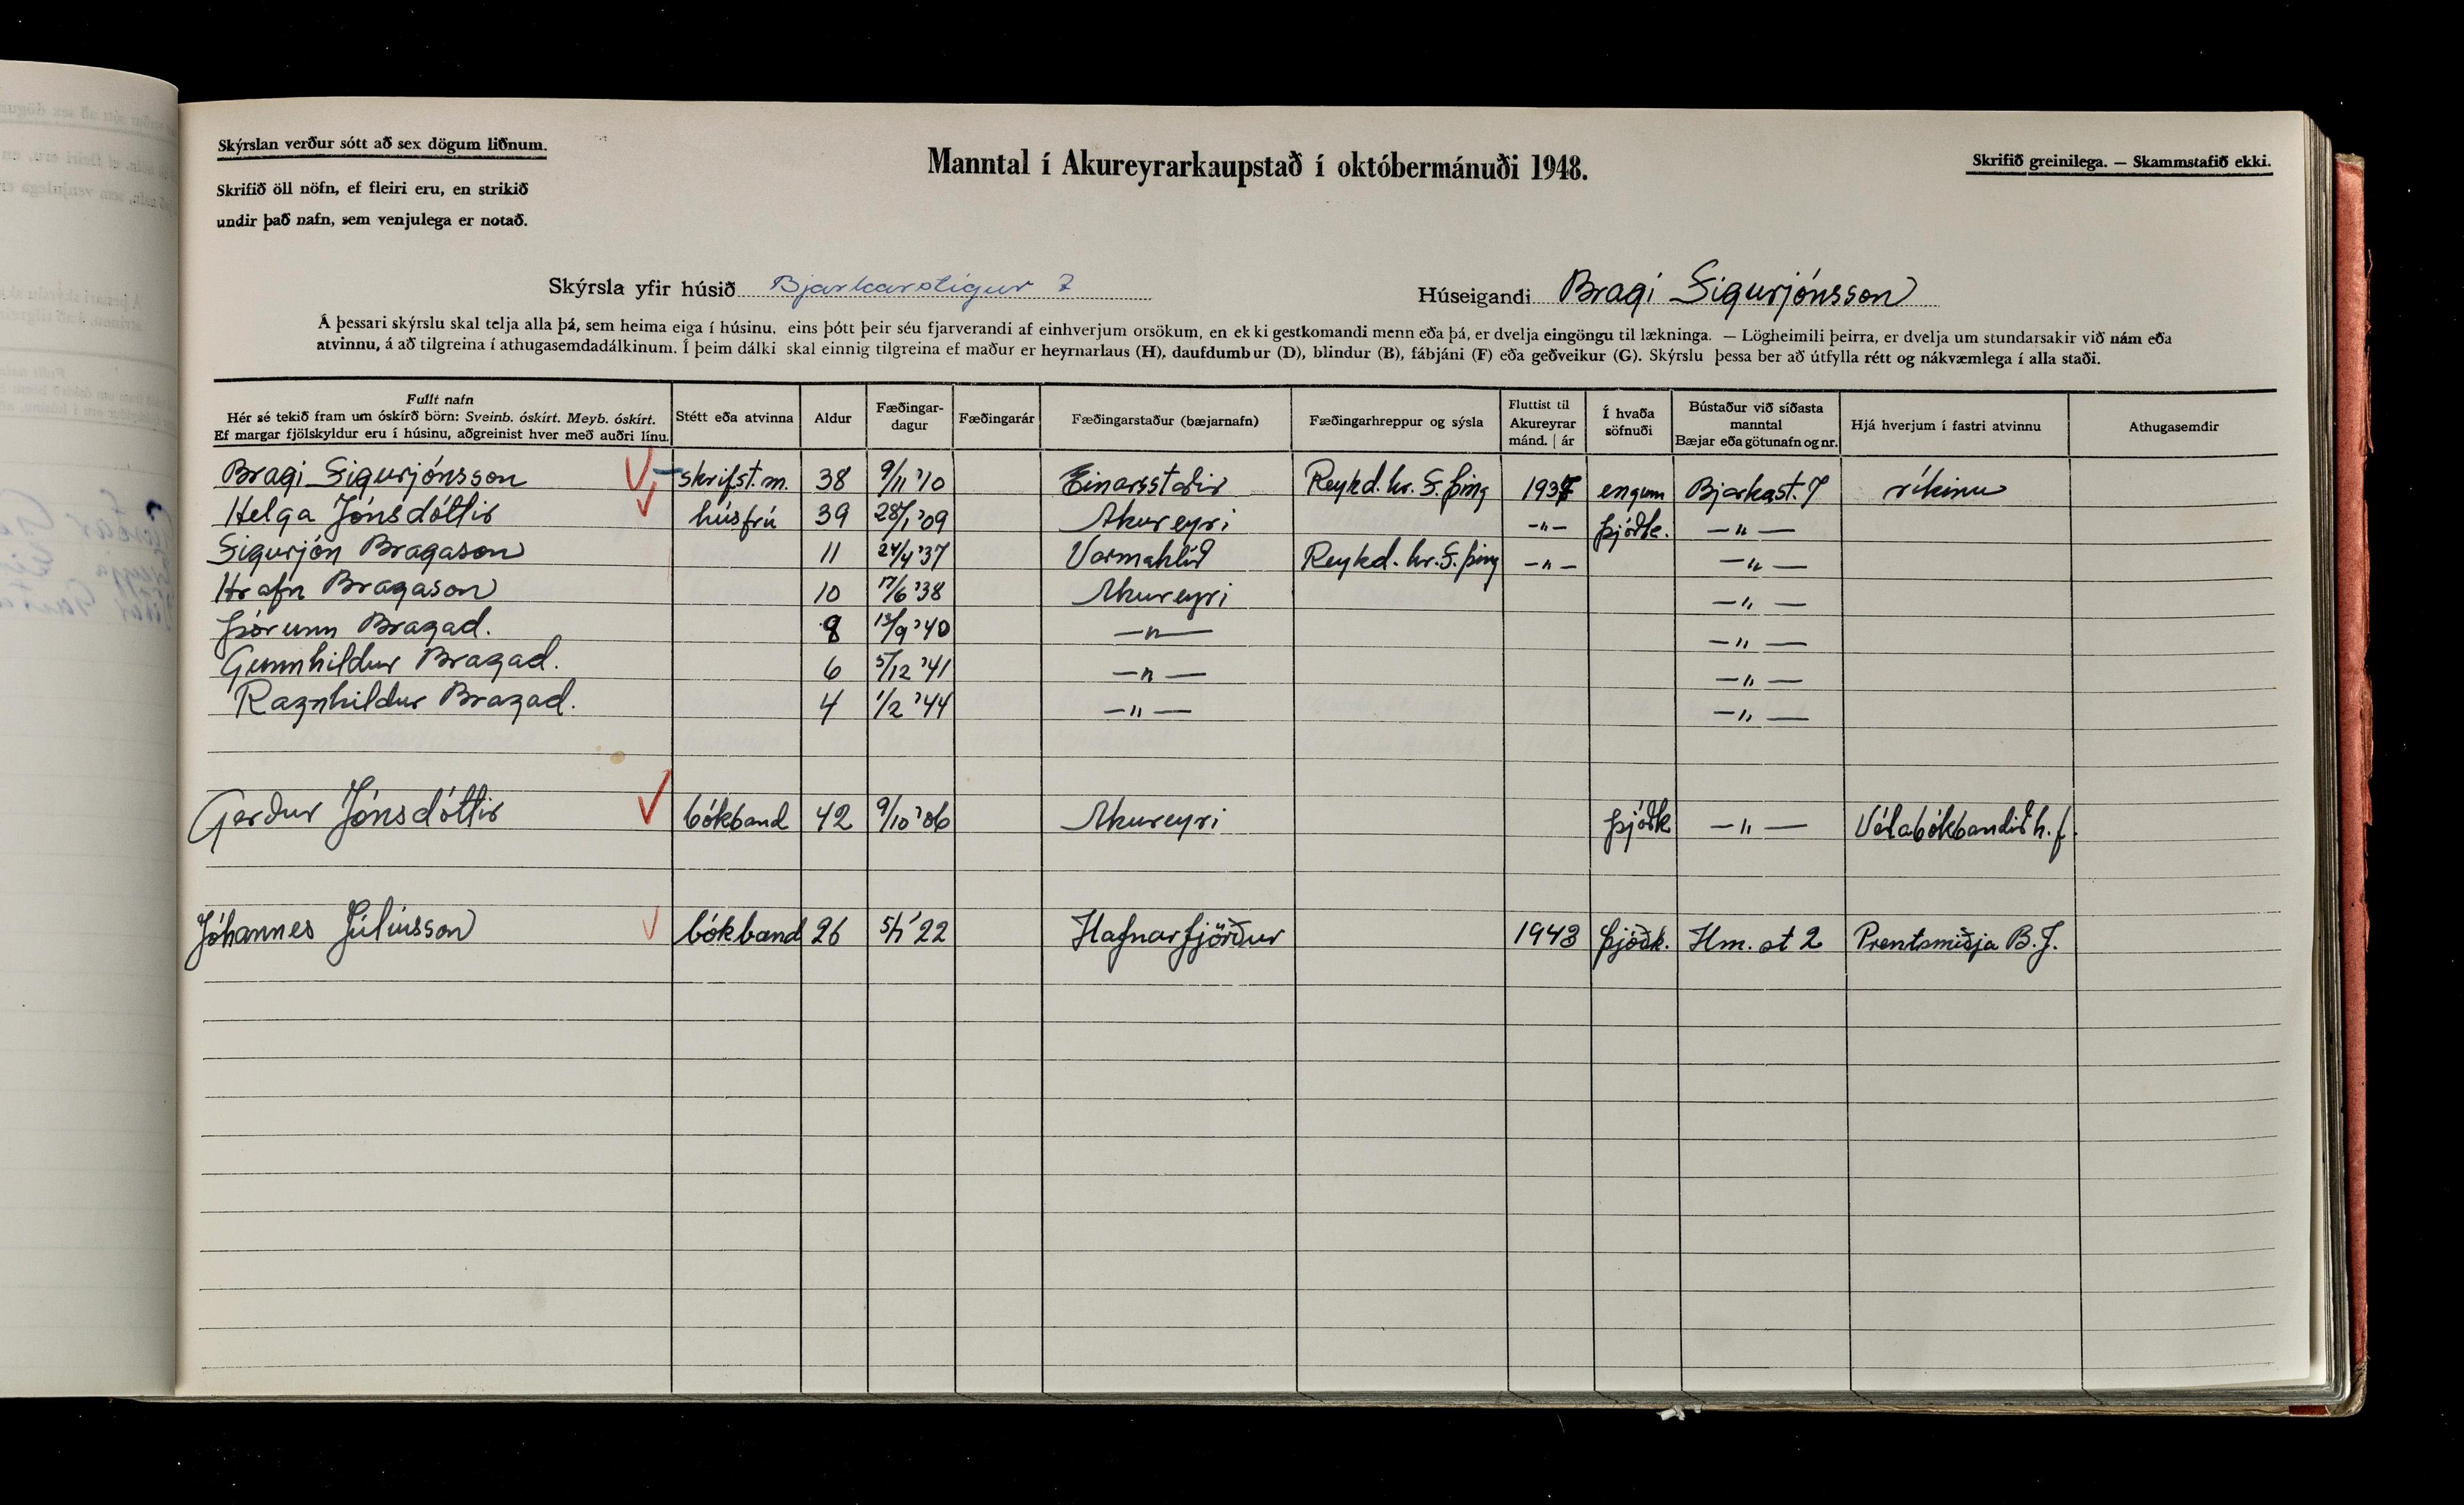 Skýrslan verður sótt að sex dögum liðnum.
Skrifið öll nöfn, ef fleiri eru, en strikið
undir það nafn, sem venjulega er notað.
Manntal í Akureyrarkaupstað í októbermánuði 1948.
Skrifið greinilega. — Skammstafið ekki.
Skýrsla yfir húsið Bjarkarstígur 7
Húseigandi Bragi Sigurjónsson
Á þessari skýrslu skal telja alla þá, sem heima eiga í húsinu, eins þótt þeir séu fjarverandi af einhverjum orsökum, en ekki gestkomandi menn eða þá, er dvelja eingöngu til lækninga. — Lögheimili þeirra, er dvelja um stundarsakir við nám eða
atvinnu, á að tilgreina í athugasemdadálkinum. Í þeim dálki skal einnig tilgreina ef maður er heyrnarlaus (H), daufdumbur (D), blindur (B), fábjáni (F) eða geðveikur (G). Skýrslu þessa ber að útfylla rétt og nákvæmlega í alla staði.
Fullt nafn
Hér sé tekið fram um óskírð börn: Sveinb. óskírt. Meyb. óskírt.
Ef margar fjölskyldur eru í húsinu, aðgreinist hver með auðri línu.
Stétt eða atvinna
Aldur
Fæðingar-
dagur
Fæðingarár
Fæðingarstaður (bæjarnafn)
Fæðingarhreppur og sýsla
Fluttist til
Akureyrar
mánd. | ár
Í hvaða
söfnuði
Bústaður við síðasta
manntal
Bæjar eða götunafn og nr.
Hjá hverjum í fastri atvinnu
Athugasemdir
Bragi Sigurjónsson skrifst.m. 38 9/11 '10 Einarsstaðir Reykd.hr. S.þing 1937 engum Bjarkast. 7 ríkinu
Helga Jónsdóttir húsfrú 39 28/1 '09 Akureyri —"— þjóðk. —"—
Sigurjón Bragason 11 24/4 '37 Varmahlíð Reykd. hr. S. þing —"— —"—
Hrafn Bragason 10 17/6 '38 Akureyri —"—
Þórunn Bragad. 8 13/9 '40 —"— —"—
Gunnhildur Bragad. 6 5/12 '41 —"— —"—
Ragnhildur Bragad. 4 1/2 '44 —"— —"—
Gerður Jónsdóttir bókband 42 9/10 '06 Akureyri þjóðk —"— Vélabókbandið h.f.
Jóhannes Júlíusson bókband 26 '22 Hafnarfjörður 1943 þjóðk. Hm. st 2 Prentsmiðja B.J.